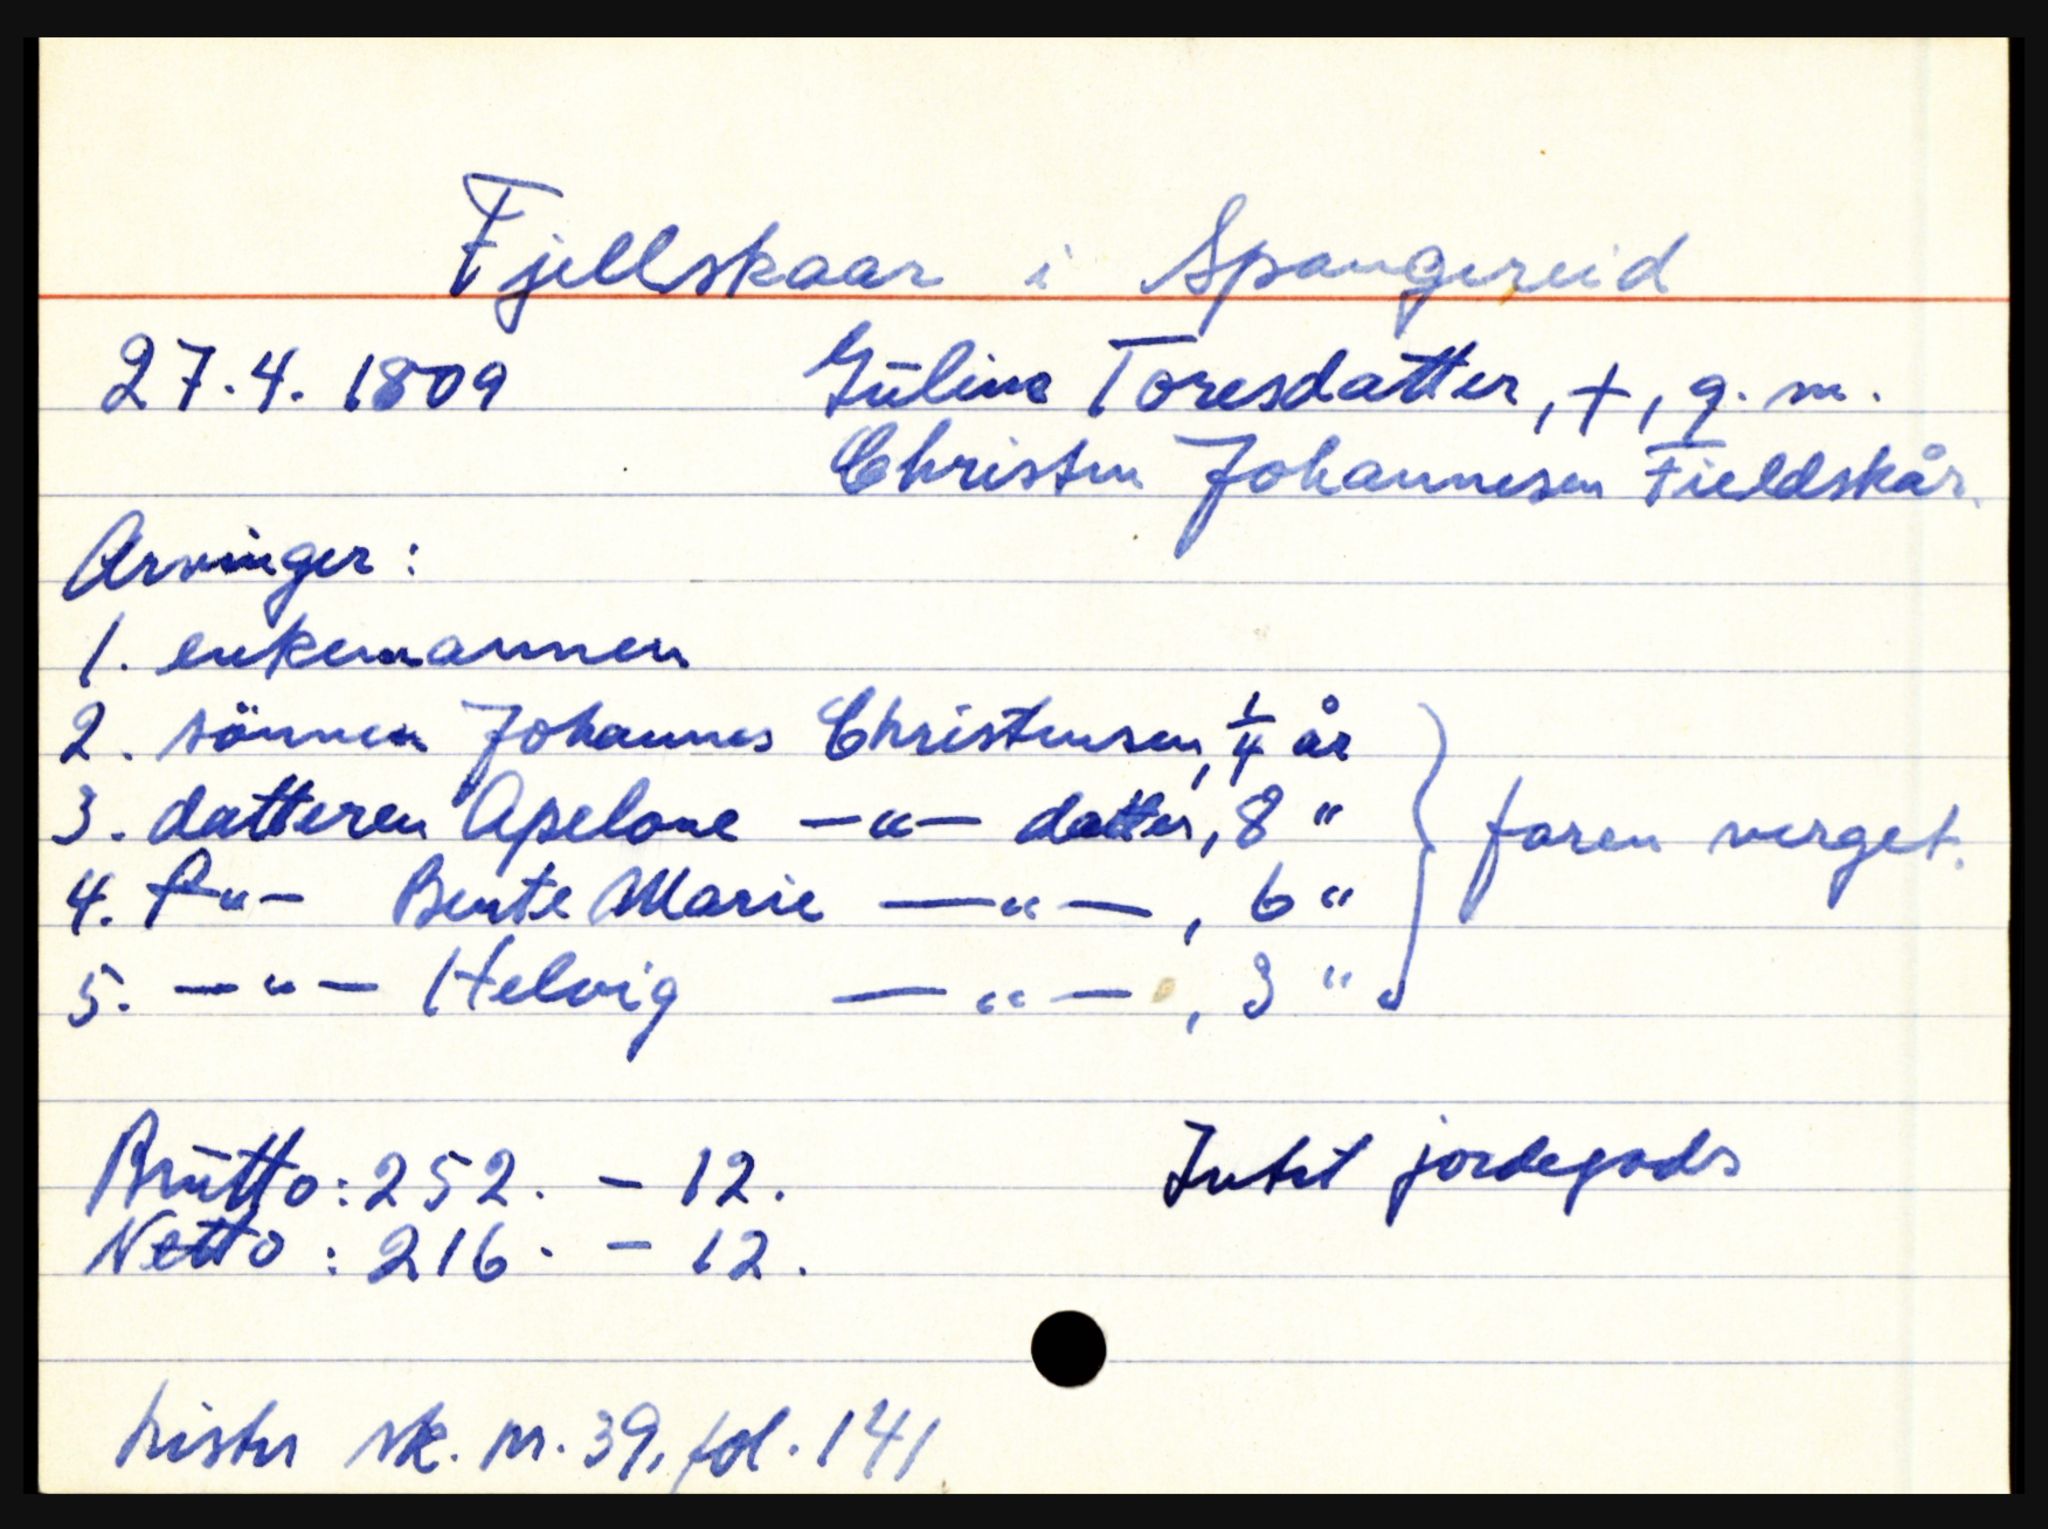 Fjellskaar i Spangereid
27.4.1809 Gŭline Toresdatter, +, g. m.
Christen Johannesen Fieldskår.
Arvinger:
1. enkemannen
2. sönnen Johannes Christensen, 1/4 år
3. datteren Apelone —"— datter, 8 "
4. —"— Bente Marie —"—, 6 "
5. —"— Helvig —"—, 3 "
faren verget.
Brŭtto: 252. - 12. Intet jordegods
Netto: 216. - 12.
Lister sk. nr. 39, fol. 141